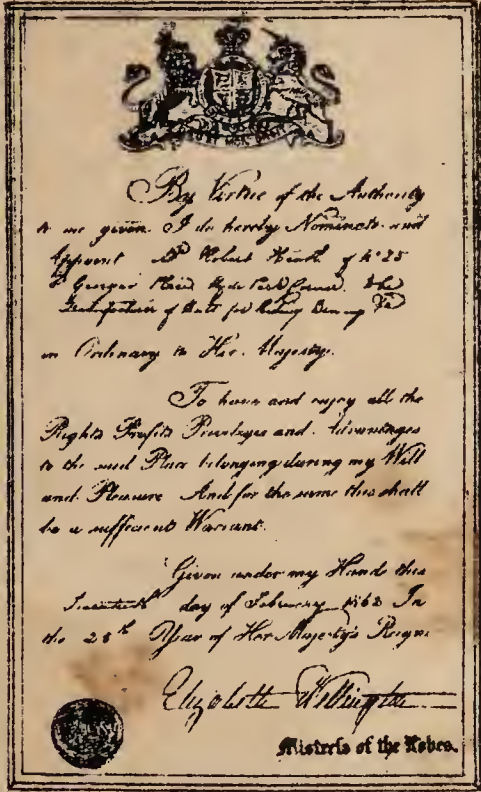 By Virtue of the Authority
to me given. I do hereby Nominate and
Appoint Mr Robert Heath of No 25
St Georges Place Hyde Park Corner. the
Manufacture of Hats for Riding
in Ordinary to Her Majesty.
To have and enjoy all the
Rights Profits Priviledges and Advantages
to the said Place belonging during my Will
and Pleasure And for the same this shall
be a sufficient Warrant.
Given under my Hand this
day of February 1862 In
the 25th Year of Her Majesty's Reign.
Elizabeth Wellington
Mistress of the Robes.